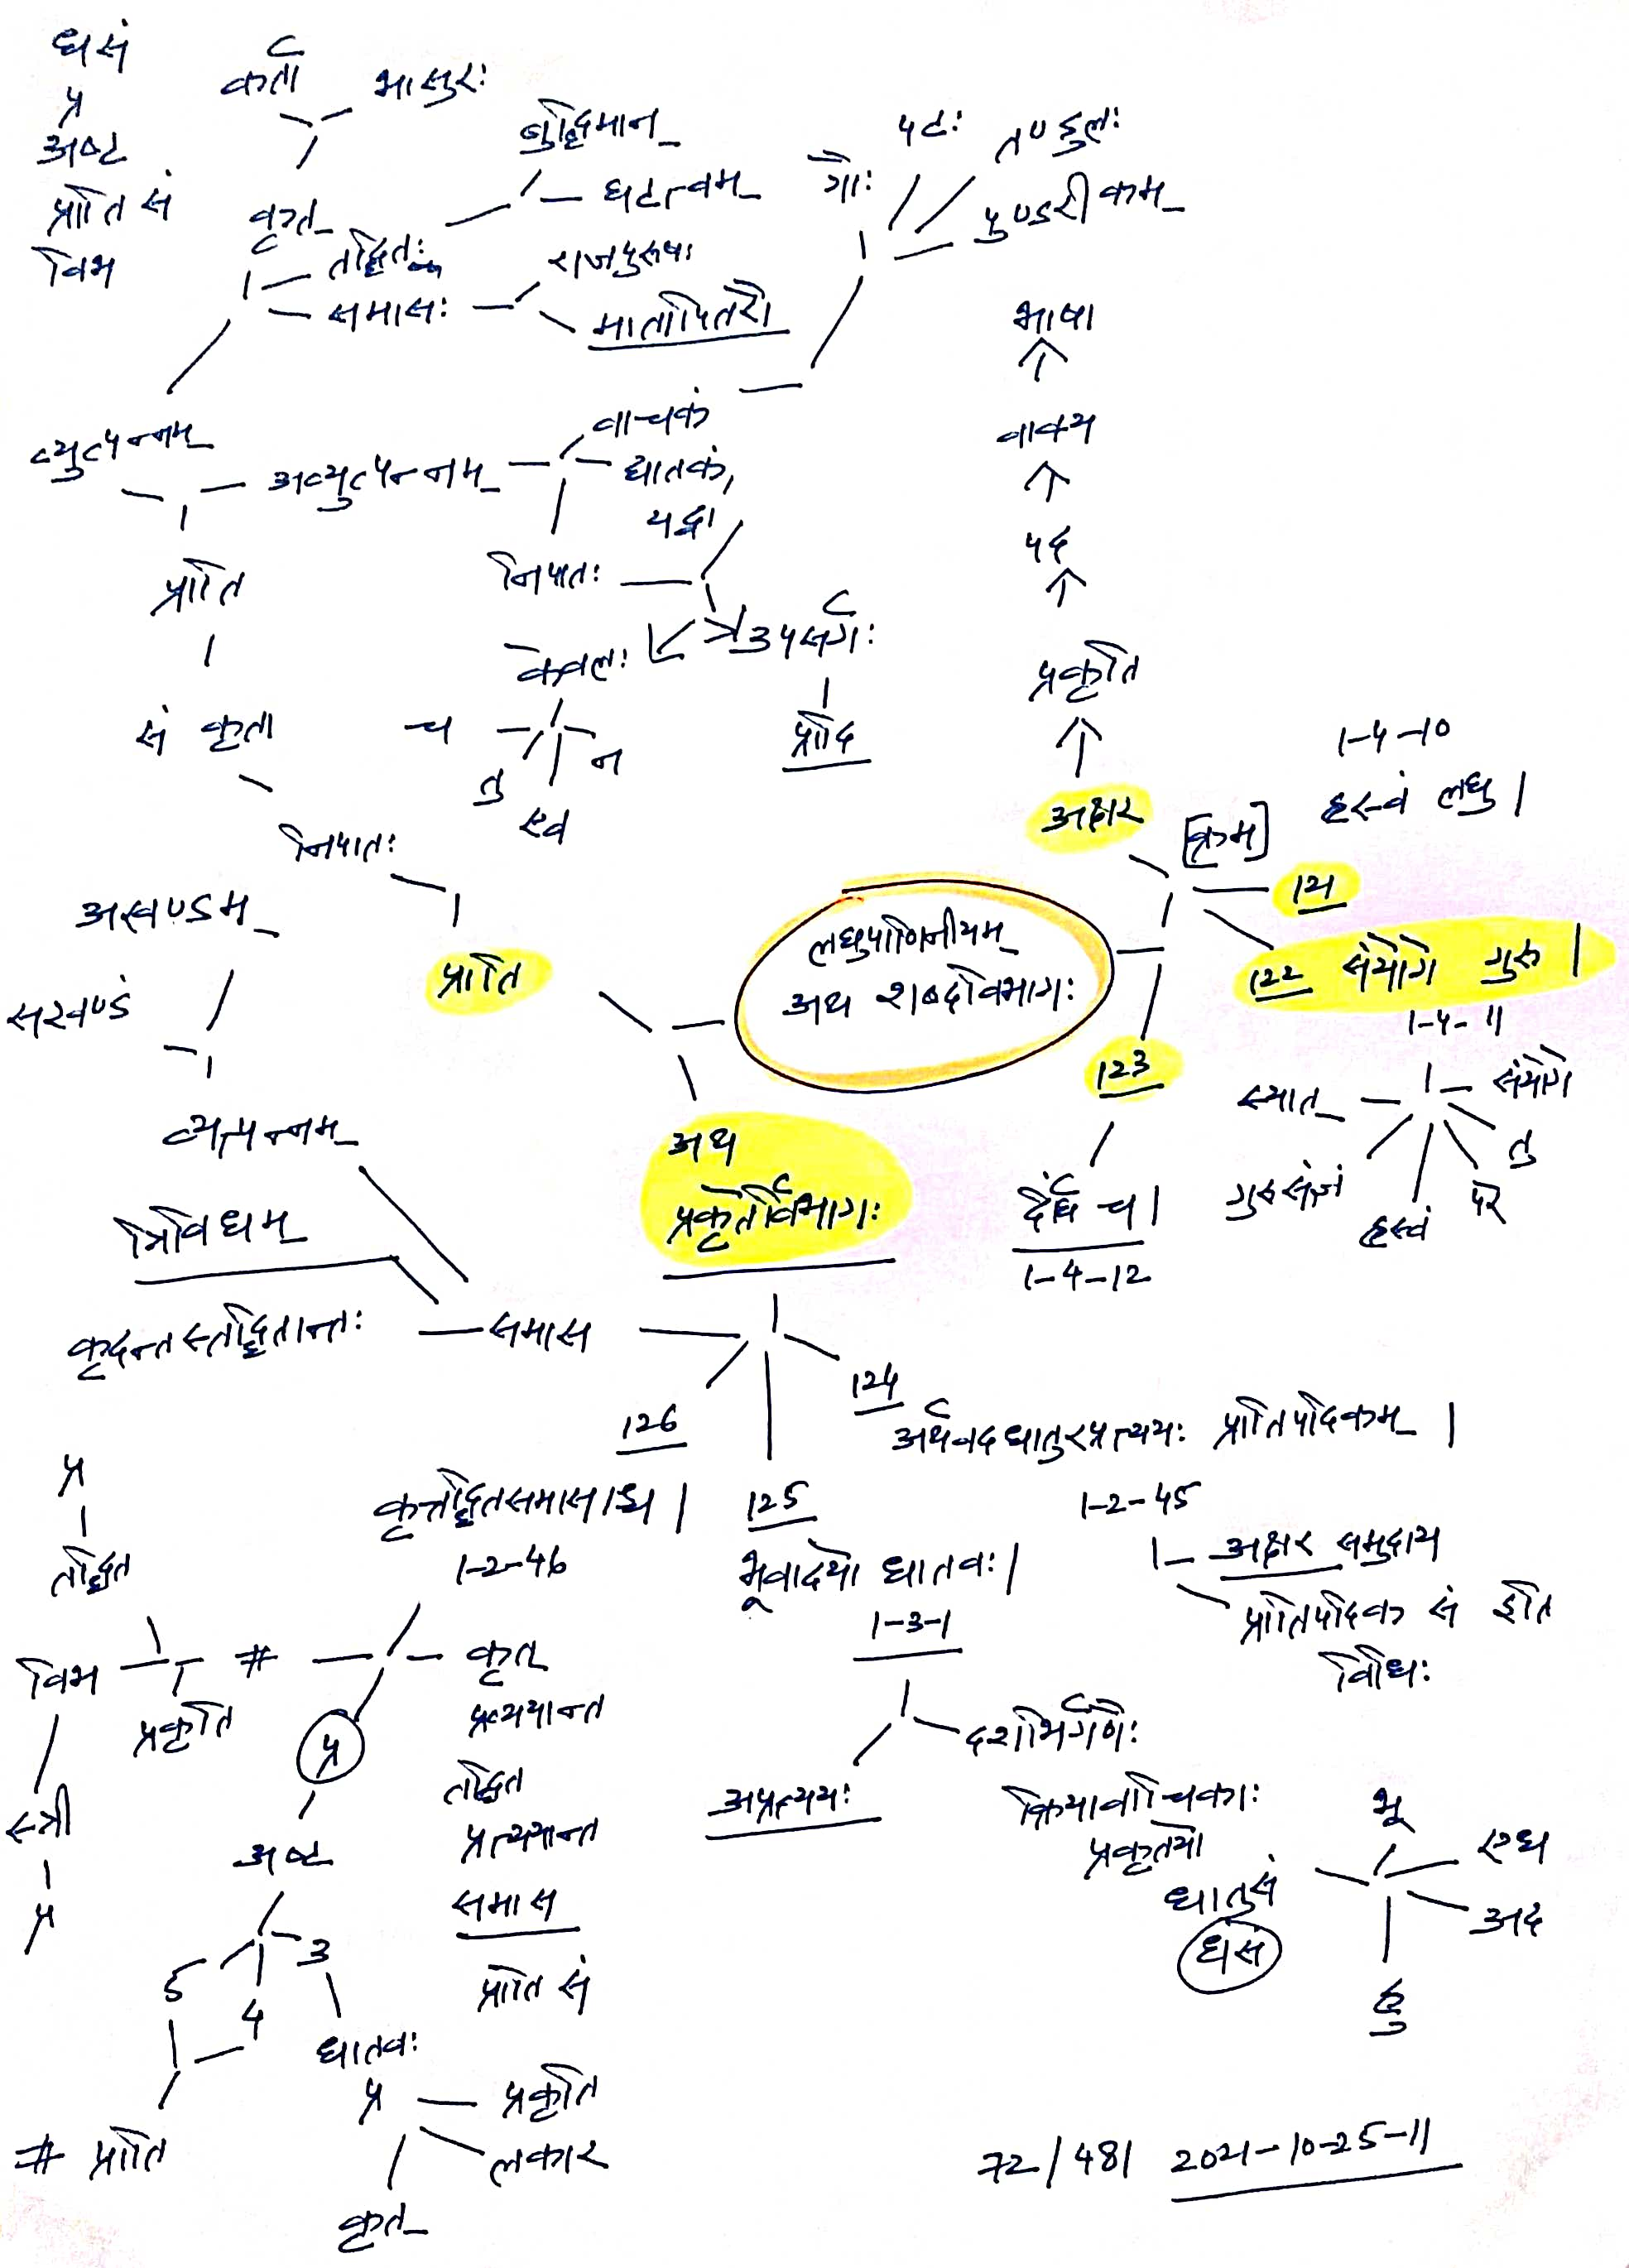 धसं
प्र
अष्ट
प्राति सं
विभ
कर्ता
भासुरः
कृत्
तद्धितः
समासः
बुद्धिमान्
घटत्वम्
राजपुरुषः
मातापितरौ
गौः
पटः
तण्डुलः
पुण्डरीकम्
व्युत्पन्नम्
अव्युत्पन्नम्
वाचकं
द्योतकं,
यद्वा
निपातः
केवलः
उपसर्गः
प्रादि
च
तु
एव
न
प्राति
सं कृता
निपातः
प्राति
भाषा
वाक्य
पद
प्रकृति
अक्षर
[क्रम]
1-4-10
ह्रस्वं लघु |
121
122 संयोगे गुरु |
1-4-11
संयोगे
तु
परे
ह्रस्वं
गुरुसंज्ञं
स्यात्
123
दीर्घं च |
1-4-12
लघुपाणिनीयम्
अथ शब्दविभागः
अथ
प्रकृतिविभागः
अखण्डम्
सखण्डं
व्युत्पन्नम्
त्रिविधम्
कृदन्तस्तद्धितान्तः
समास
124
अर्थवदधातुरप्रत्ययः प्रातिपदिकम् |
1-2-45
अक्षर समुदाय
प्रातिपदिक सं इति
विधिः
125
भूवादयो धातवः |
1-3-1
दशभिर्गणैः
अप्रत्ययः
क्रियावाचिकाः
प्रकृतयो
धातुसं
धसं
भू
एध
अद
हु
126
कृत्तद्धितसमासाश्च |
1-2-46
कृत्
प्रत्ययान्त
तद्धित
प्रत्ययान्त
समास
प्राति सं
प्र
तद्धित
विभ
#
प्रकृति
स्त्री
प्र
प्र
अष्ट
5
4
3
धातवः
# प्राति
प्र
प्रकृति
लकार
कृत्
72/481 2021-10-25-11